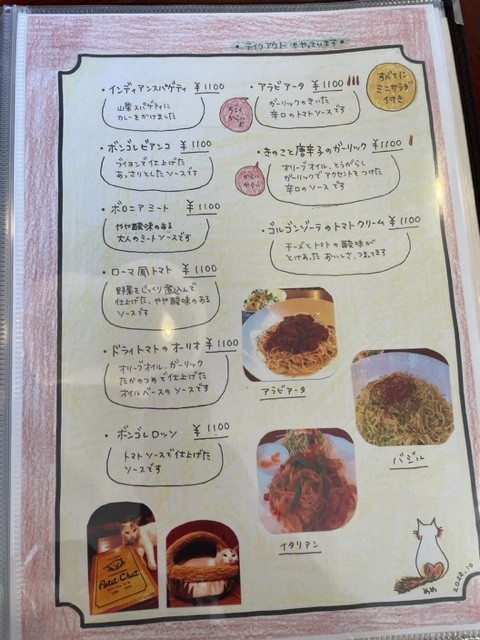 • テイクアウト もやっています •
• インディアンスパゲティ ¥1100
山葉スパゲティに
カレーをかけました
• ボンゴレビアンコ ¥1100
ブイヨンで仕上げた
あっさりとしたソースです
• ボロニアミート ¥1100
やや酸味のある
大人のミートソースです
• ローマ風トマト ¥1100
野菜をじっくり煮込んで
仕上げた、やや酸味のある
ソースです
• ドライトマトのオーリオ ¥1100
オリーブオイル、ガーリック
たかのつめで仕上げた
オイルベースのソースです
• ボンゴレロッソ ¥1100
トマトソースで仕上げた
ソースです
• アラビアータ ¥1100
ガーリックのきいた
辛口のトマトソースです
すごく
からい
よ
すべてに
ミニサラダ
付き
• きのこと唐辛子のガーリック ¥1100
オリーブオイル、とうがらし
ガーリックでアクセントをつけた
辛口のソースです
• ゴルゴンゾーラのトマトクリーム ¥1100
チーズとトマトの酸味が
とけあった おいしさ、つまってます
アラビアータ
バジル
イタリアン
Petit Chat
2022.10